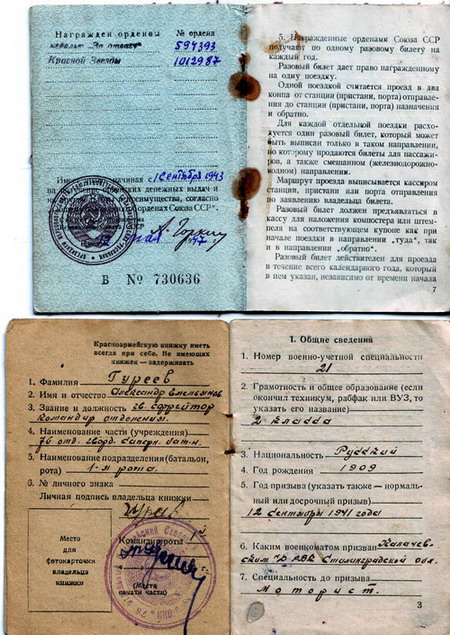 Награжден орденами
№ ордена
медалью "За отвагу"
594393
Красной Звезды
1012987
Им начиная с 1 сентября 1943
на денежных выдач и
преимущества, согласно
орденах СССР
А. Горкин
мая 47
В № 730636
5. Награжденные орденами Союза ССР
получают по одному разовому билету на
каждый год.
Разовый билет дает право награжденному
на одну поездку.
Одной поездкой считается проезд в два
конца от станции (пристани, порта) отправле-
ния до станции (пристани, порта) назначения
и обратно.
Для каждой отдельной поездки расхо-
дуется один разовый билет, который может
быть выписан только в таком направлении,
по которому продаются билеты для пассажи-
ров, а также смешанном (железнодорожно-
водном) направлении.
Маршрут проезда выписывается кассиром
станции, пристани или порта отправления
по заявлению владельца билета.
Разовый билет должен предъявляться в
кассу для наложения компостера или штем-
пеля на соответствующем купоне как при
начале поездки в направлении „туда", так
и в направлении „обратно".
Разовый билет действителен для проезда
в течение всего календарного года, который
в нем указан, независимо от времени начала
7
Красноармейскую книжку иметь
всегда при себе. Не имеющих
книжек — задерживать
1. Фамилия Гуреев
2. Имя и отчество Александр Емельянов
3. Звание и должность гв ефрейтор
командир отделения.
4. Наименование части (учреждения)
76 отд. гвард. саперн. бат-н.
5. Наименование подразделения (батальон,
рота) 1-я рота.
6. № личного знака
Личная подпись владельца книжки
Гуреев
Место
для
фотокарточки
владельца
книжки
Командир роты
(Место
печати части)
I. Общие сведения
1. Номер военно-учетной специальности
21
2. Грамотность и общее образование (если
окончил техникум, рабфак или ВУЗ, то
указать его название)
2 класса
3. Национальность Русский
4. Год рождения 1909
5. Год призыва (указать также — нормаль-
ный или досрочный призыв)
12 сентября 1941 года
6. Каким военкоматом призван Калачев-
ским РВК Сталинградской обл.
7. Специальность до призыва
Моторист.
3